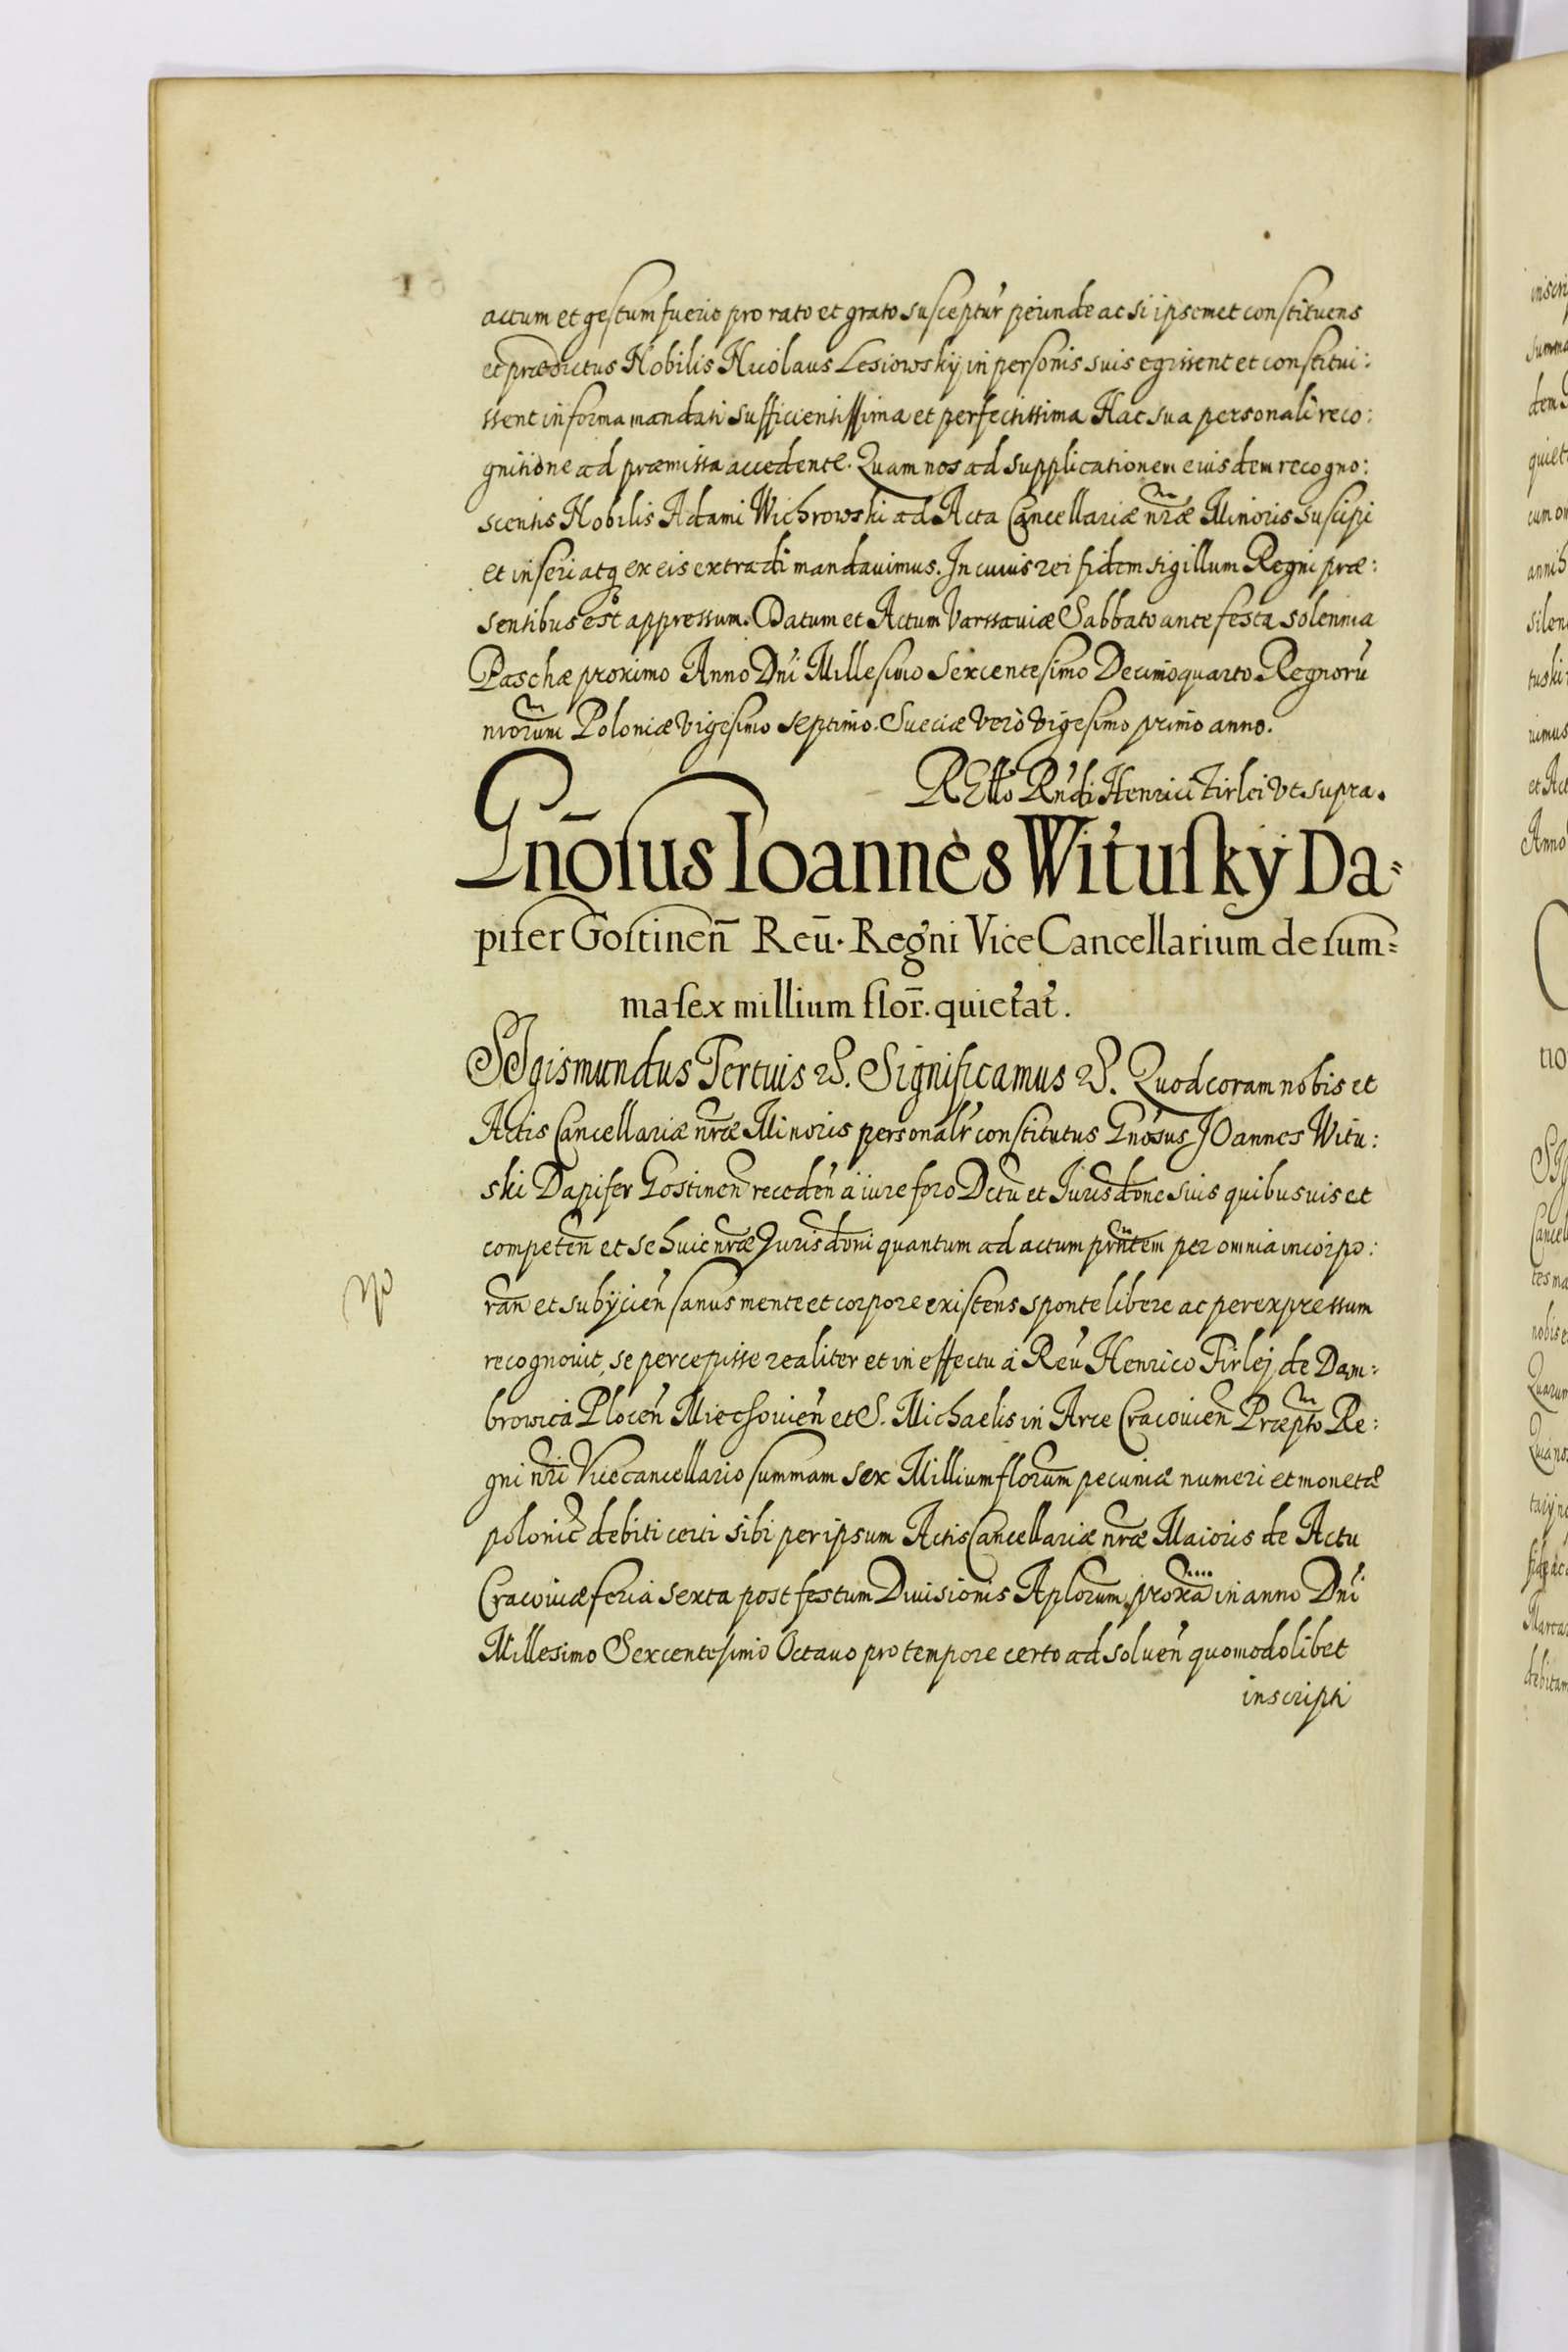 actum et gestum fuerit pro rato et grato susceptur̃ perinde ac si ipsemet constituens
et prædictus Nobilis Nicolaus Lesiowskÿ in personis suis egissent et constitui:
ssent in forma mandati sufficientissima et perfectissima Hac sua personali reco:
gnitione ad præmissa accedente. Quam nos ad supplicationem eiusdem recogno:
scentis Nobilis Adami Wichrowski ad Acta Cancellariæ nr̃æ Minoris suscipi
et inseri atq ex eis extradi mandauimus. In cuius rei fidem sigillum Regni præ:
sentibus est appressum. Datum et Actum Varssauiæ Sabbato ante festa solennia
Paschæ proximo Anno Dñi Millesimo Sexcentesimo Decimoquarto Regnorũ
nrorum Poloniæ Vigesimo septimo. Sueciæ Verò Vigesimo primo anno.
RElło Rñdi Henrici Firlei Vt supra.
Gnõsus Ioannes Wituskÿ Da=
pifer Gostinen̄ Reū. Regni ViceCancellarium de sum=
ma sex millium flor̄. quietat.
SIgismundus Tertius &. Significamus &. Quod coram nobis et
Actis Cancellariæ nr̃æ Minoris personalr̃ constitutus Gnõsus IOannes Witu:
ski Dapifer Gostinen̄ receden̄ à iure foro Dctũ et Jurisdone suis quibusuis et
competen̄ et se huic nr̃æ Jurisdoni quantum ad actum prñtem per omnia incorpo:
ran̄ et subÿcien̄ sanus mente et corpore existens sponte libere ac per expressum
recognouit, se percepisse realiter et in effectu à Reũ Henrico Firlej de Dam:
browica Plocen̄ Miechouien̄ et S. Michaelis in Arce Cracouien̄ Præpto Re:
gni nr̃i Vicecancellario summam sex Millium florum pecuniæ numeri et monetæ
polonic̃ debiti certi sibi per ipsum Actis Cancellariæ nr̃æ Maioris de Actu
Cracouiæ feria sexta post festum Diuisionis Aplorum proxã in anno Dñi
Millesimo Sexcentesimo Octauo pro tempore certo ad soluen̄ quomodolibet
inscripti